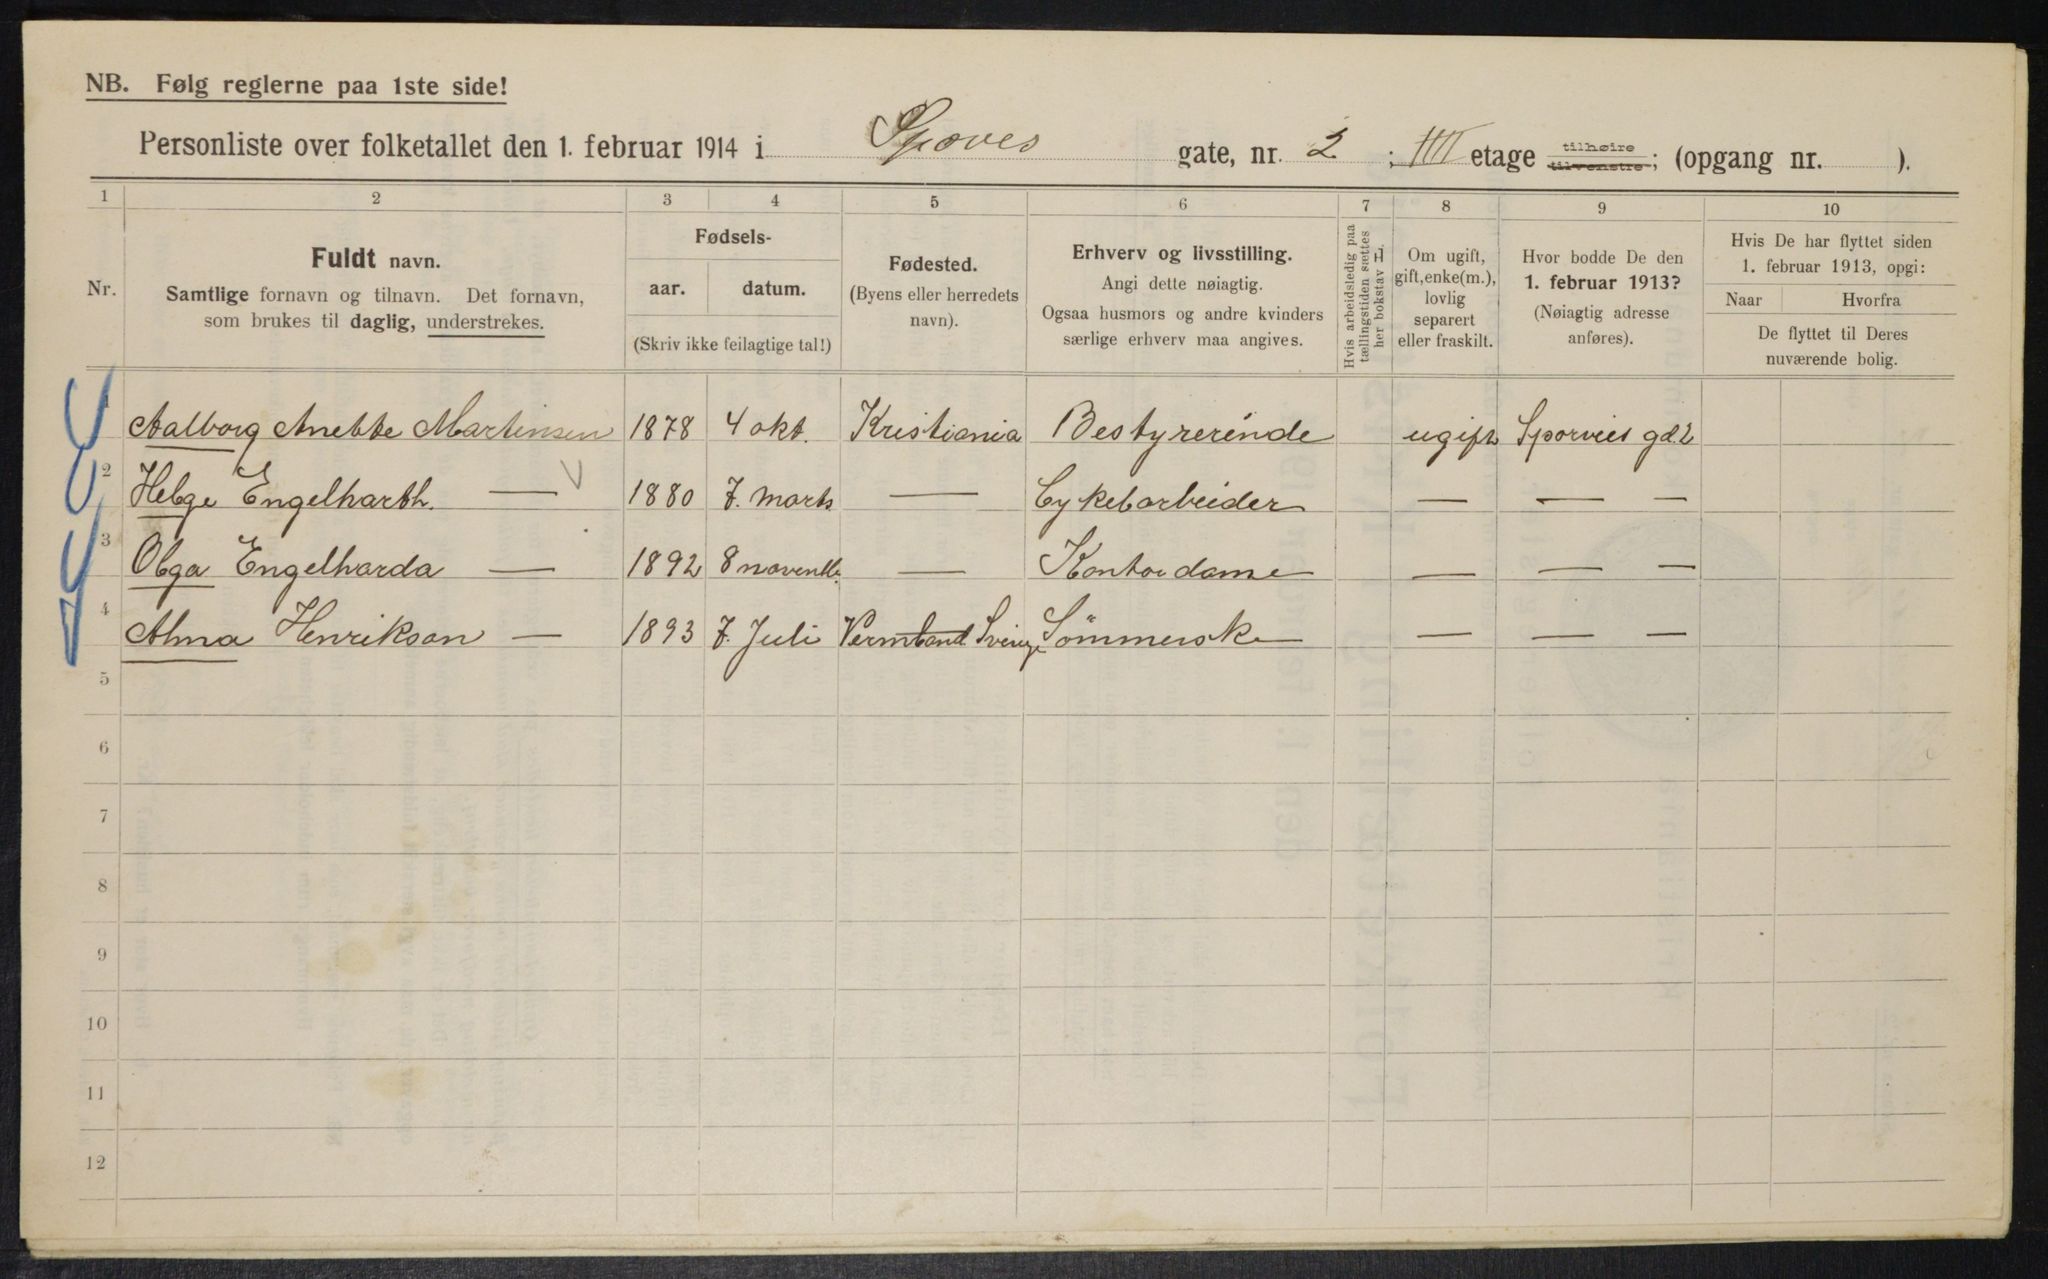 NB. Følg reglerne paa 1ste side!
Personliste over folketallet den 1. februar 1914 i Sporves gate, nr. 2 ; IIII etage tilhøire tilvenstre; (opgang nr. ).
1 2 3 4 5 6 7 8 9 10
Nr.
Fuldt navn.
Samtlige fornavn og tilnavn. Det fornavn,
som brukes til daglig, understrekes.
Fødsels-
aar. datum.
(Skriv ikke feilagtige tal!)
Fødested.
(Byens eller herredets
navn).
Erhverv og livsstilling.
Angi dette nøiagtig.
Ogsaa husmors og andre kvinders
særlige erhverv maa angives.
Hvis arbeidsledig paa
tællingstiden sættes
her bokstav L.
Om ugift,
gift, enke(m.),
lovlig
separert
eller fraskilt.
Hvor bodde De den
1. februar 1913?
(Nøiagtig adresse
anføres).
Hvis De har flyttet siden
1. februar 1913, opgi:
Naar Hvorfra
De flyttet til Deres
nuværende bolig.
1 Aalborg Anette Martinsen 1878 4 okt. Kristiania Bestyrerinde ugift Sporveis gd. 2
2 Helge Engelharth. — 1880 7. marts — Cykelarbeider — — —
3 Olga Engelharda — 1892 8 novembr. — Kontordame — — —
4 Alma Henrikson — 1893 7. Juli Vermland Sverige Sömmerske — — —
5
6
7
8
9
10
11
12